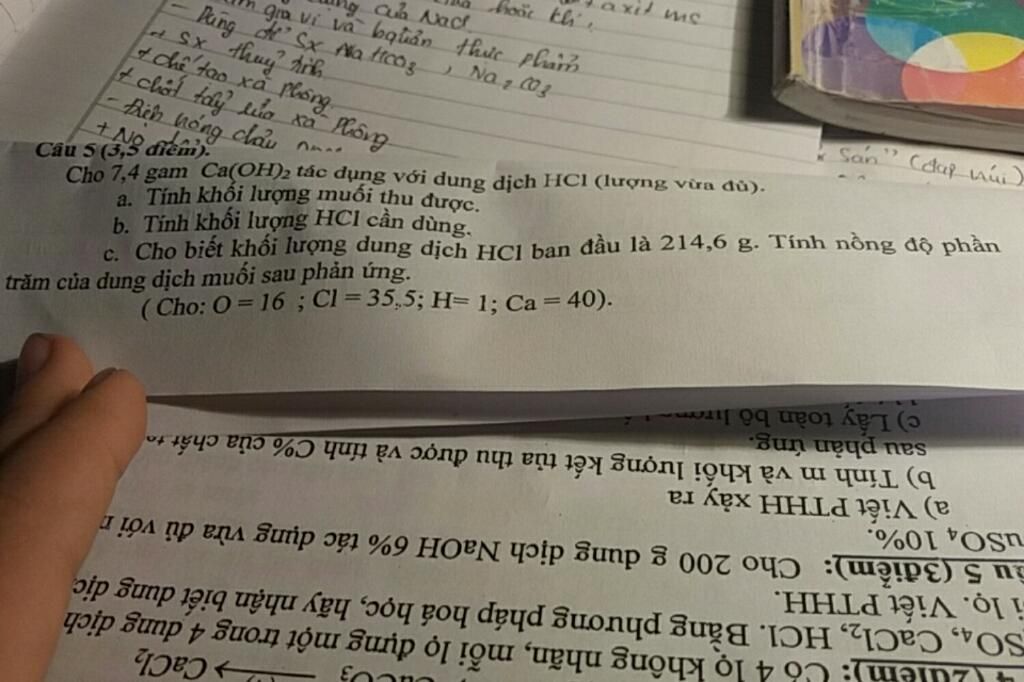 axit mc
của NaCl
hoặc khí,
gia vị và bquản thực phẩm
- Dùng để Sx NaHCO3, Na2CO3
+ Sx thuỷ tinh
+ chế tạo xà phòng
+ chất tẩy rửa xà phòng
- Điện nóng chảy
"Sán" (đạp núi)
Câu 5 (3,5 điểm).
Cho 7,4 gam Ca(OH)2 tác dụng với dung dịch HCl (lượng vừa đủ).
a. Tính khối lượng muối thu được.
b. Tính khối lượng HCl cần dùng.
c. Cho biết khối lượng dung dịch HCl ban đầu là 214,6 g. Tính nồng độ phần
trăm của dung dịch muối sau phản ứng.
( Cho: O = 16 ; Cl = 35,5; H= 1; Ca = 40).
CaCl2
4 (2điểm): Có 4 lọ không nhãn, mỗi lọ đựng một trong 4 dung dịch
SO4, CaCl2, HCl. Bằng phương pháp hoá học, hãy nhận biết dung dịc
i lọ. Viết PTHH.
âu 5 (3điểm): Cho 200 g dung dịch NaOH 6% tác dụng vừa đủ với
uSO4 10%.
a) Viết PTHH xảy ra
b) Tính m và khối lượng kết tủa thu được và tính C% của chất
sau phản ứng.
c) Lấy toàn bộ